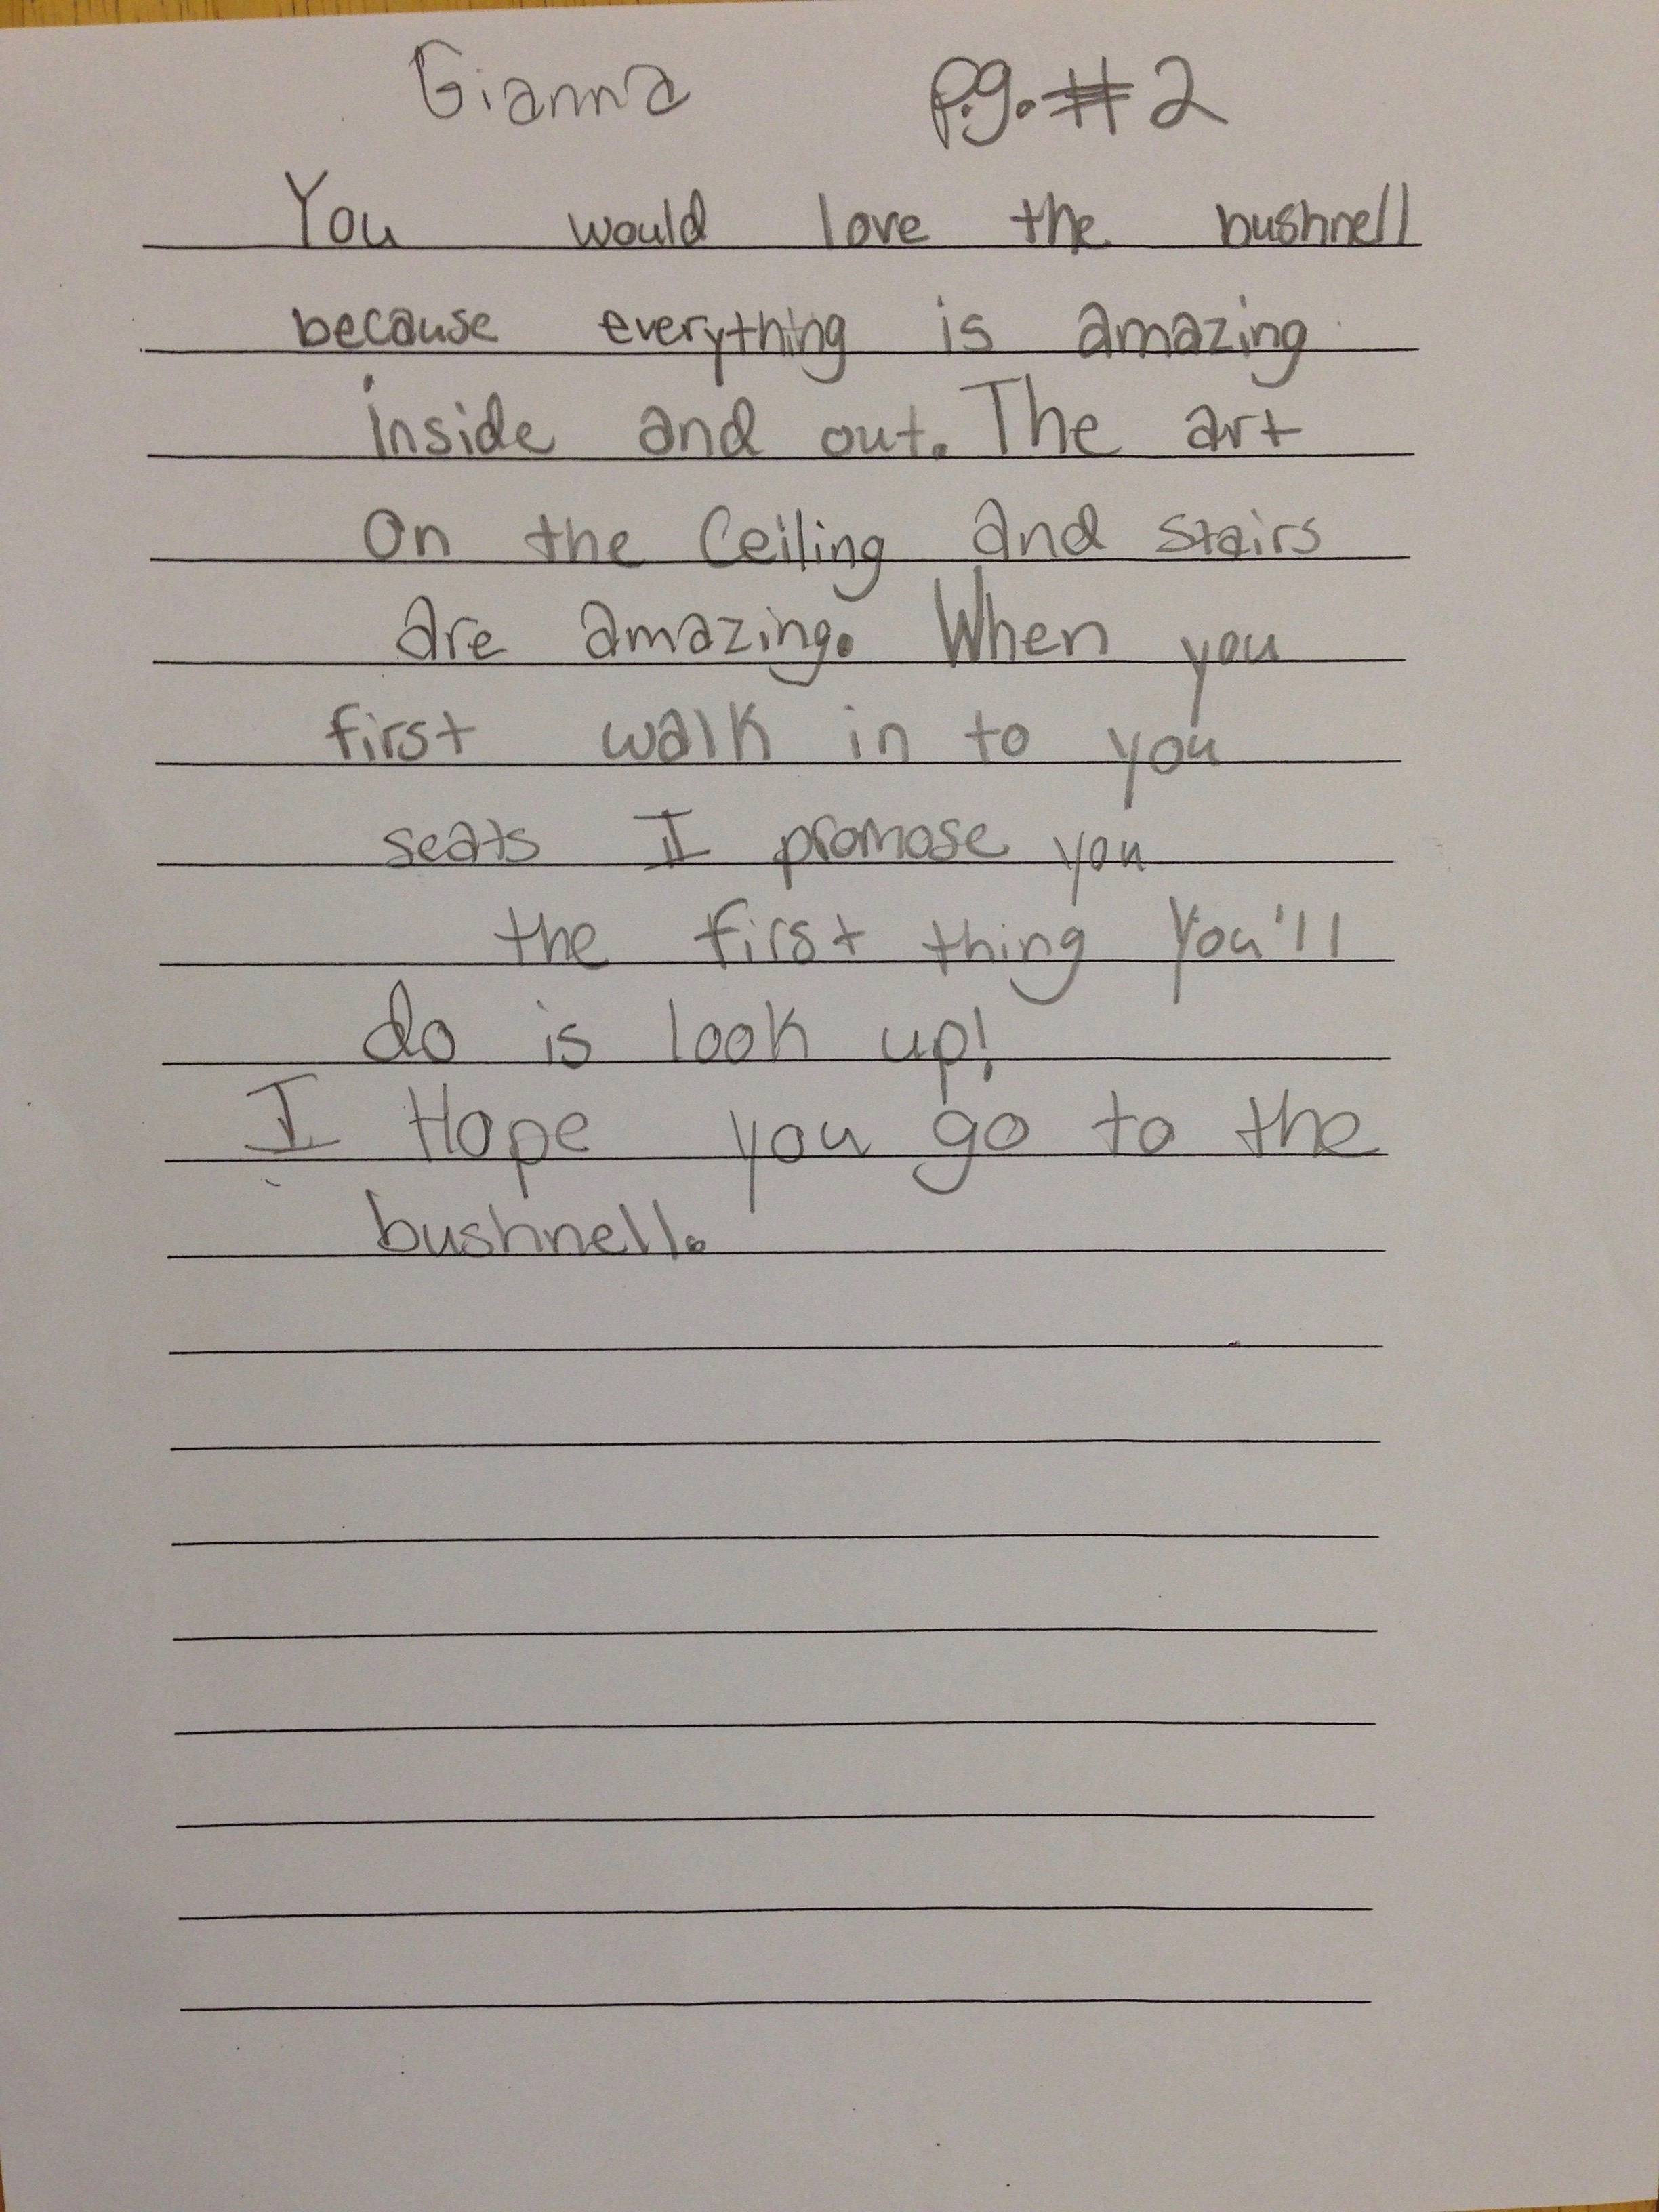 Gianna pg. #2
You would love the bushnell
because everything is amazing
inside and out. The art
On the Ceiling and stairs
are amazing. When you
first walk in to you
seats I promose you
the first thing You'll
do is look up!
I Hope you go to the
bushnell.